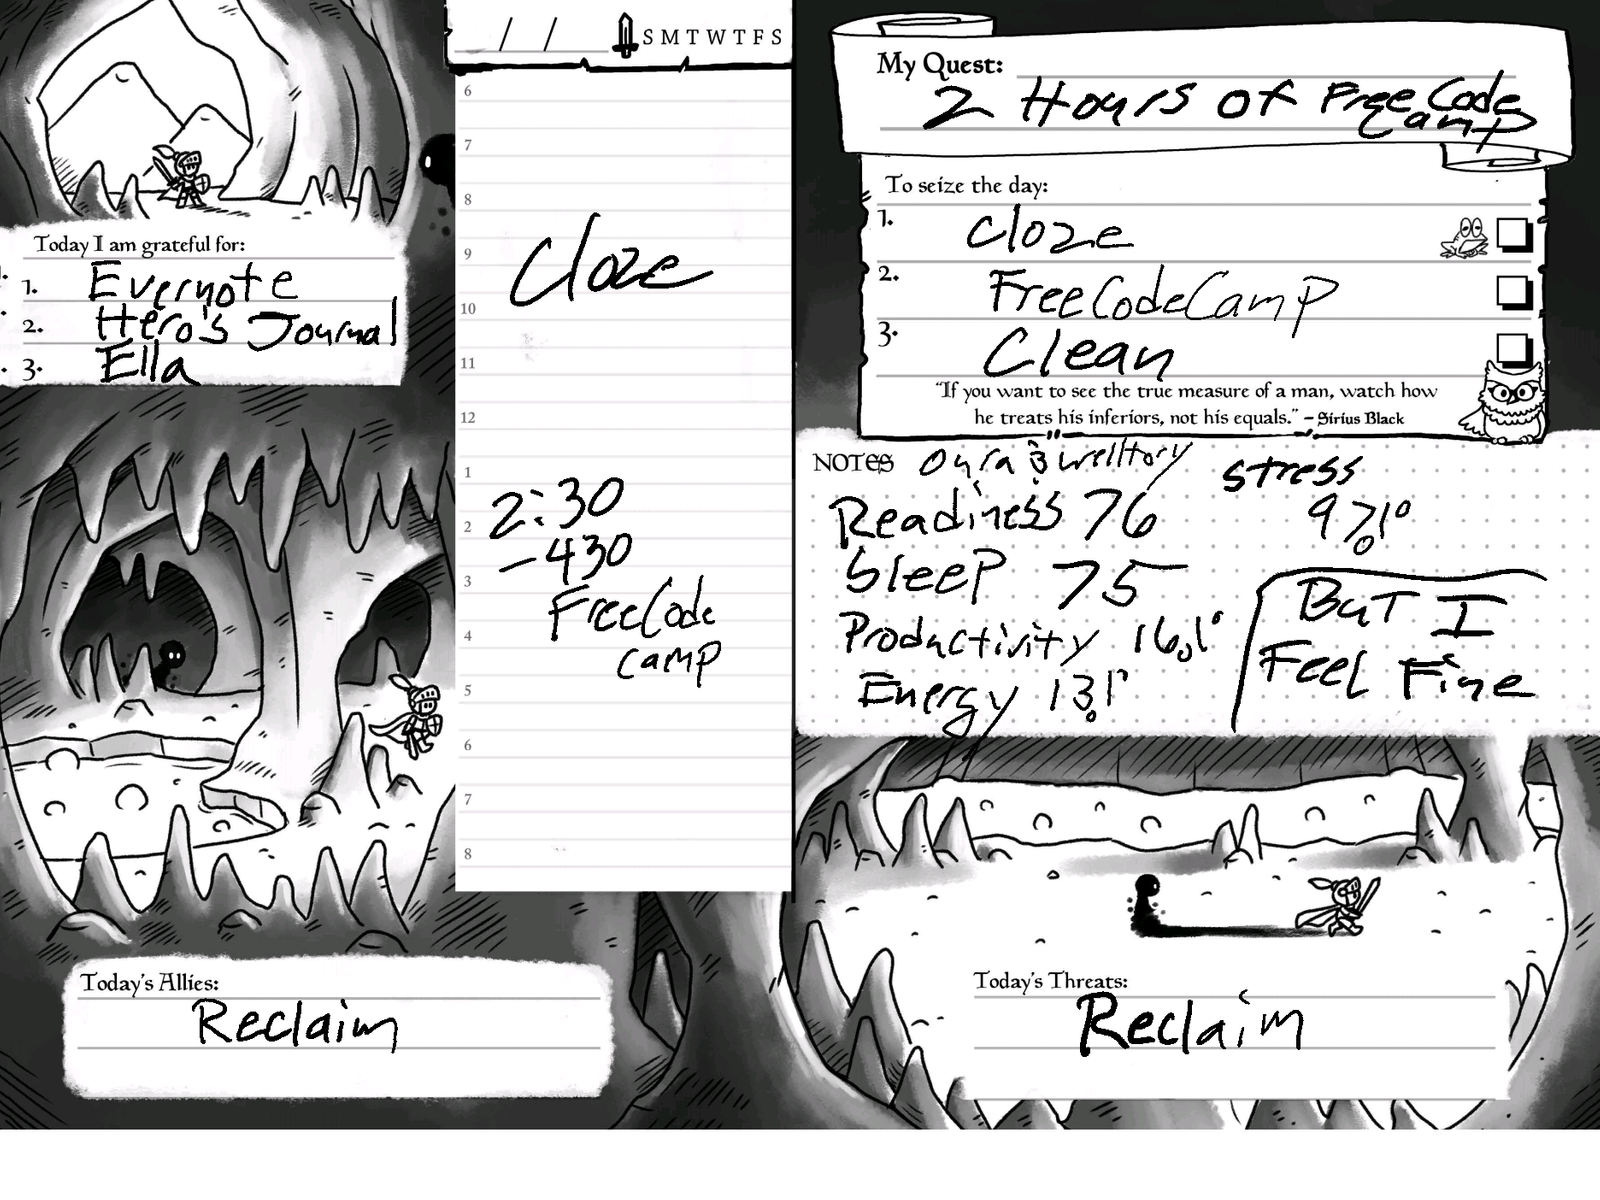 Today I am grateful for:
1. Evernote
2. Hero's Journal
3. Ella
/ / S M T W T F S
6
7
8
9
Cloze
10
11
12
1
2:30
2
-430
3
FreeCode
4
camp
5
6
7
8
My Quest:
2 Hours of Free Code
Camp
To seize the day:
1. Cloze
2. FreeCodeCamp
3. Clean
"If you want to see the true measure of a man, watch how
he treats his inferiors, not his equals." – Sirius Black
NOTES Oura & welltory
Stress
Readiness 76
9%
Sleep 75
Productivity 16%
Energy 13%
But I
Feel Fine
Today's Allies:
Reclaim
Today's Threats:
Reclaim